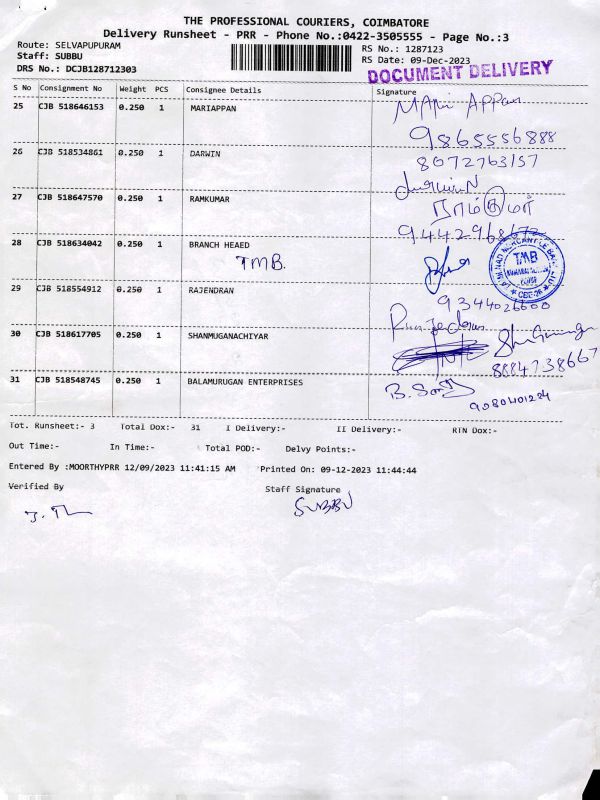 THE PROFESSIONAL COURIERS, COIMBATORE
Delivery Runsheet - PRR - Phone No.:0422-3505555 - Page No.:3
Route: SELVAPUPURAM RS No.: 1287123
Staff: SUBBU RS Date: 09-Dec-2023
DRS No.: DCJB128712303 DOCUMENT DELIVERY
S No Consignment No Weight PCS Consignee Details Signature
25 CJB 518646153 0.250 1 MARIAPPAN MARi APPan
9865556888
26 CJB 518534861 0.250 1 DARWIN 8072763157
27 CJB 518647570 0.250 1 RAMKUMAR ராம்குமார்
28 CJB 518634042 0.250 1 BRANCH HEAED
TMB. TMB
29 CJB 518554912 0.250 1 RAJENDRAN 9344026600
30 CJB 518617705 0.250 1 SHANMUGANACHIYAR
8884738667
31 CJB 518548745 0.250 1 BALAMURUGAN ENTERPRISES B.
9080401284
Tot. Runsheet:- 3 Total Dox:- 31 I Delivery:- II Delivery:- RTN Dox:-
Out Time:- In Time:- Total POD:- Delvy Points:-
Entered By :MOORTHYPRR 12/09/2023 11:41:15 AM Printed On: 09-12-2023 11:44:44
Verified By Staff Signature
SUBBU